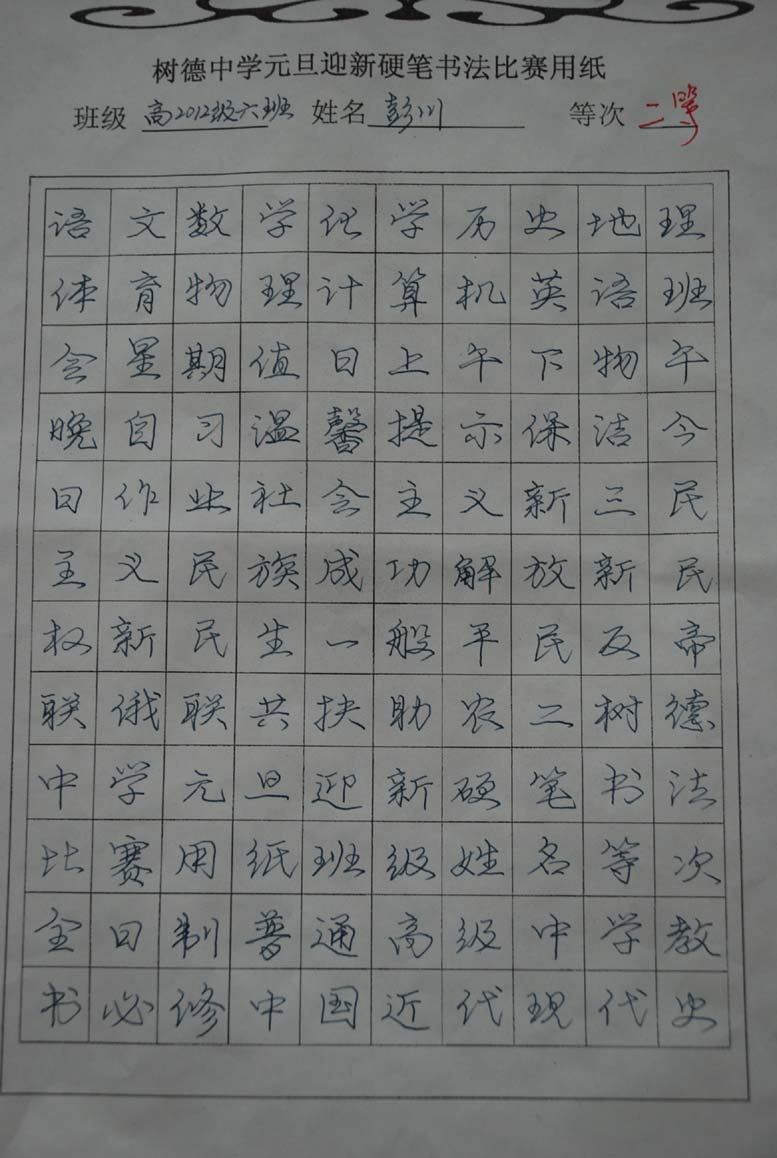 树德中学元旦迎新硬笔书法比赛用纸
班级 高2012级六班 姓名 彭川 等次 二等
语文数学化学历史地理
体育物理计算机英语班
会星期值日上午下物午
晚自习温馨提示保洁今
日作业社会主义新三民
主义民族成功解放新民
权新民生一般平民反帝
联俄联共扶助农二树德
中学元旦迎新硬笔书法
比赛用纸班级姓名等次
全日制普通高级中学教
书必修中国近代现代史